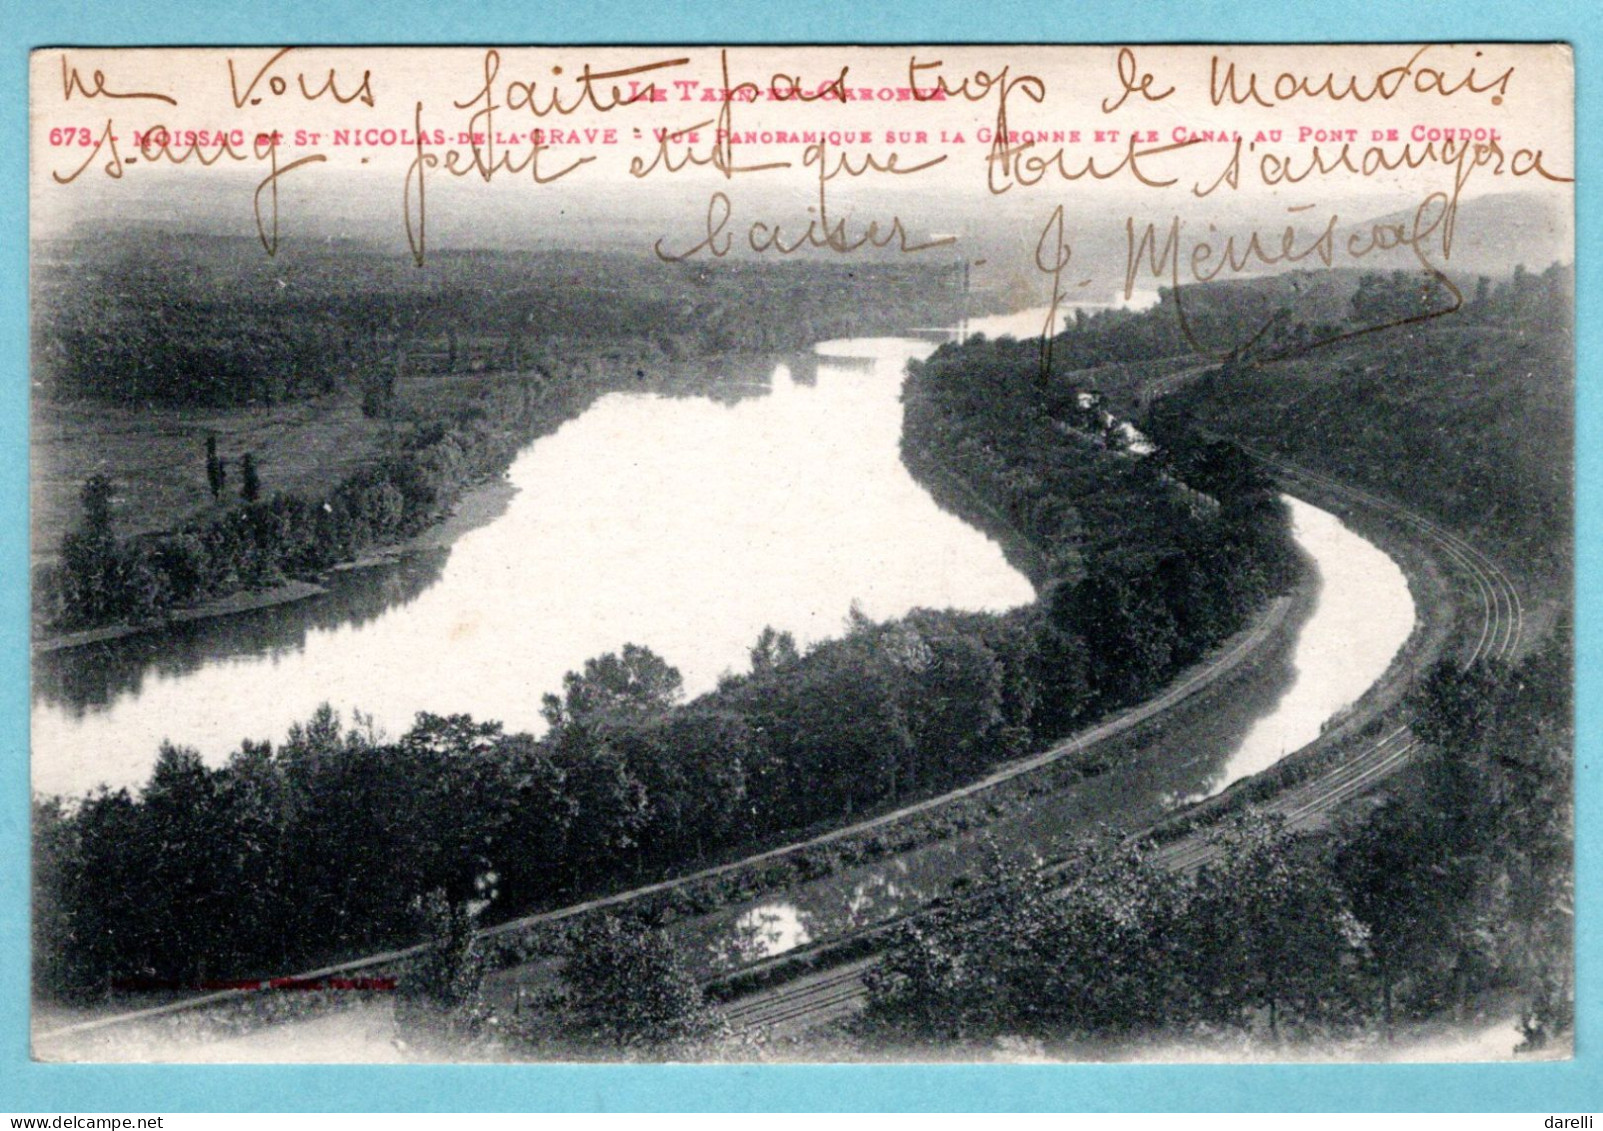 ne Vous, faites pas trop de Mauvais
LE TARN-ET-GARONNE
673. - MOISSAC ET ST NICOLAS-DE-LA-GRAVE - VUE PANORAMIQUE SUR LA GARONNE ET LE CANAL AU PONT DE COUDOL
sang. petit que tout s'arrangera
baiser. J. Ménéscal
TOULOUSE
darelli